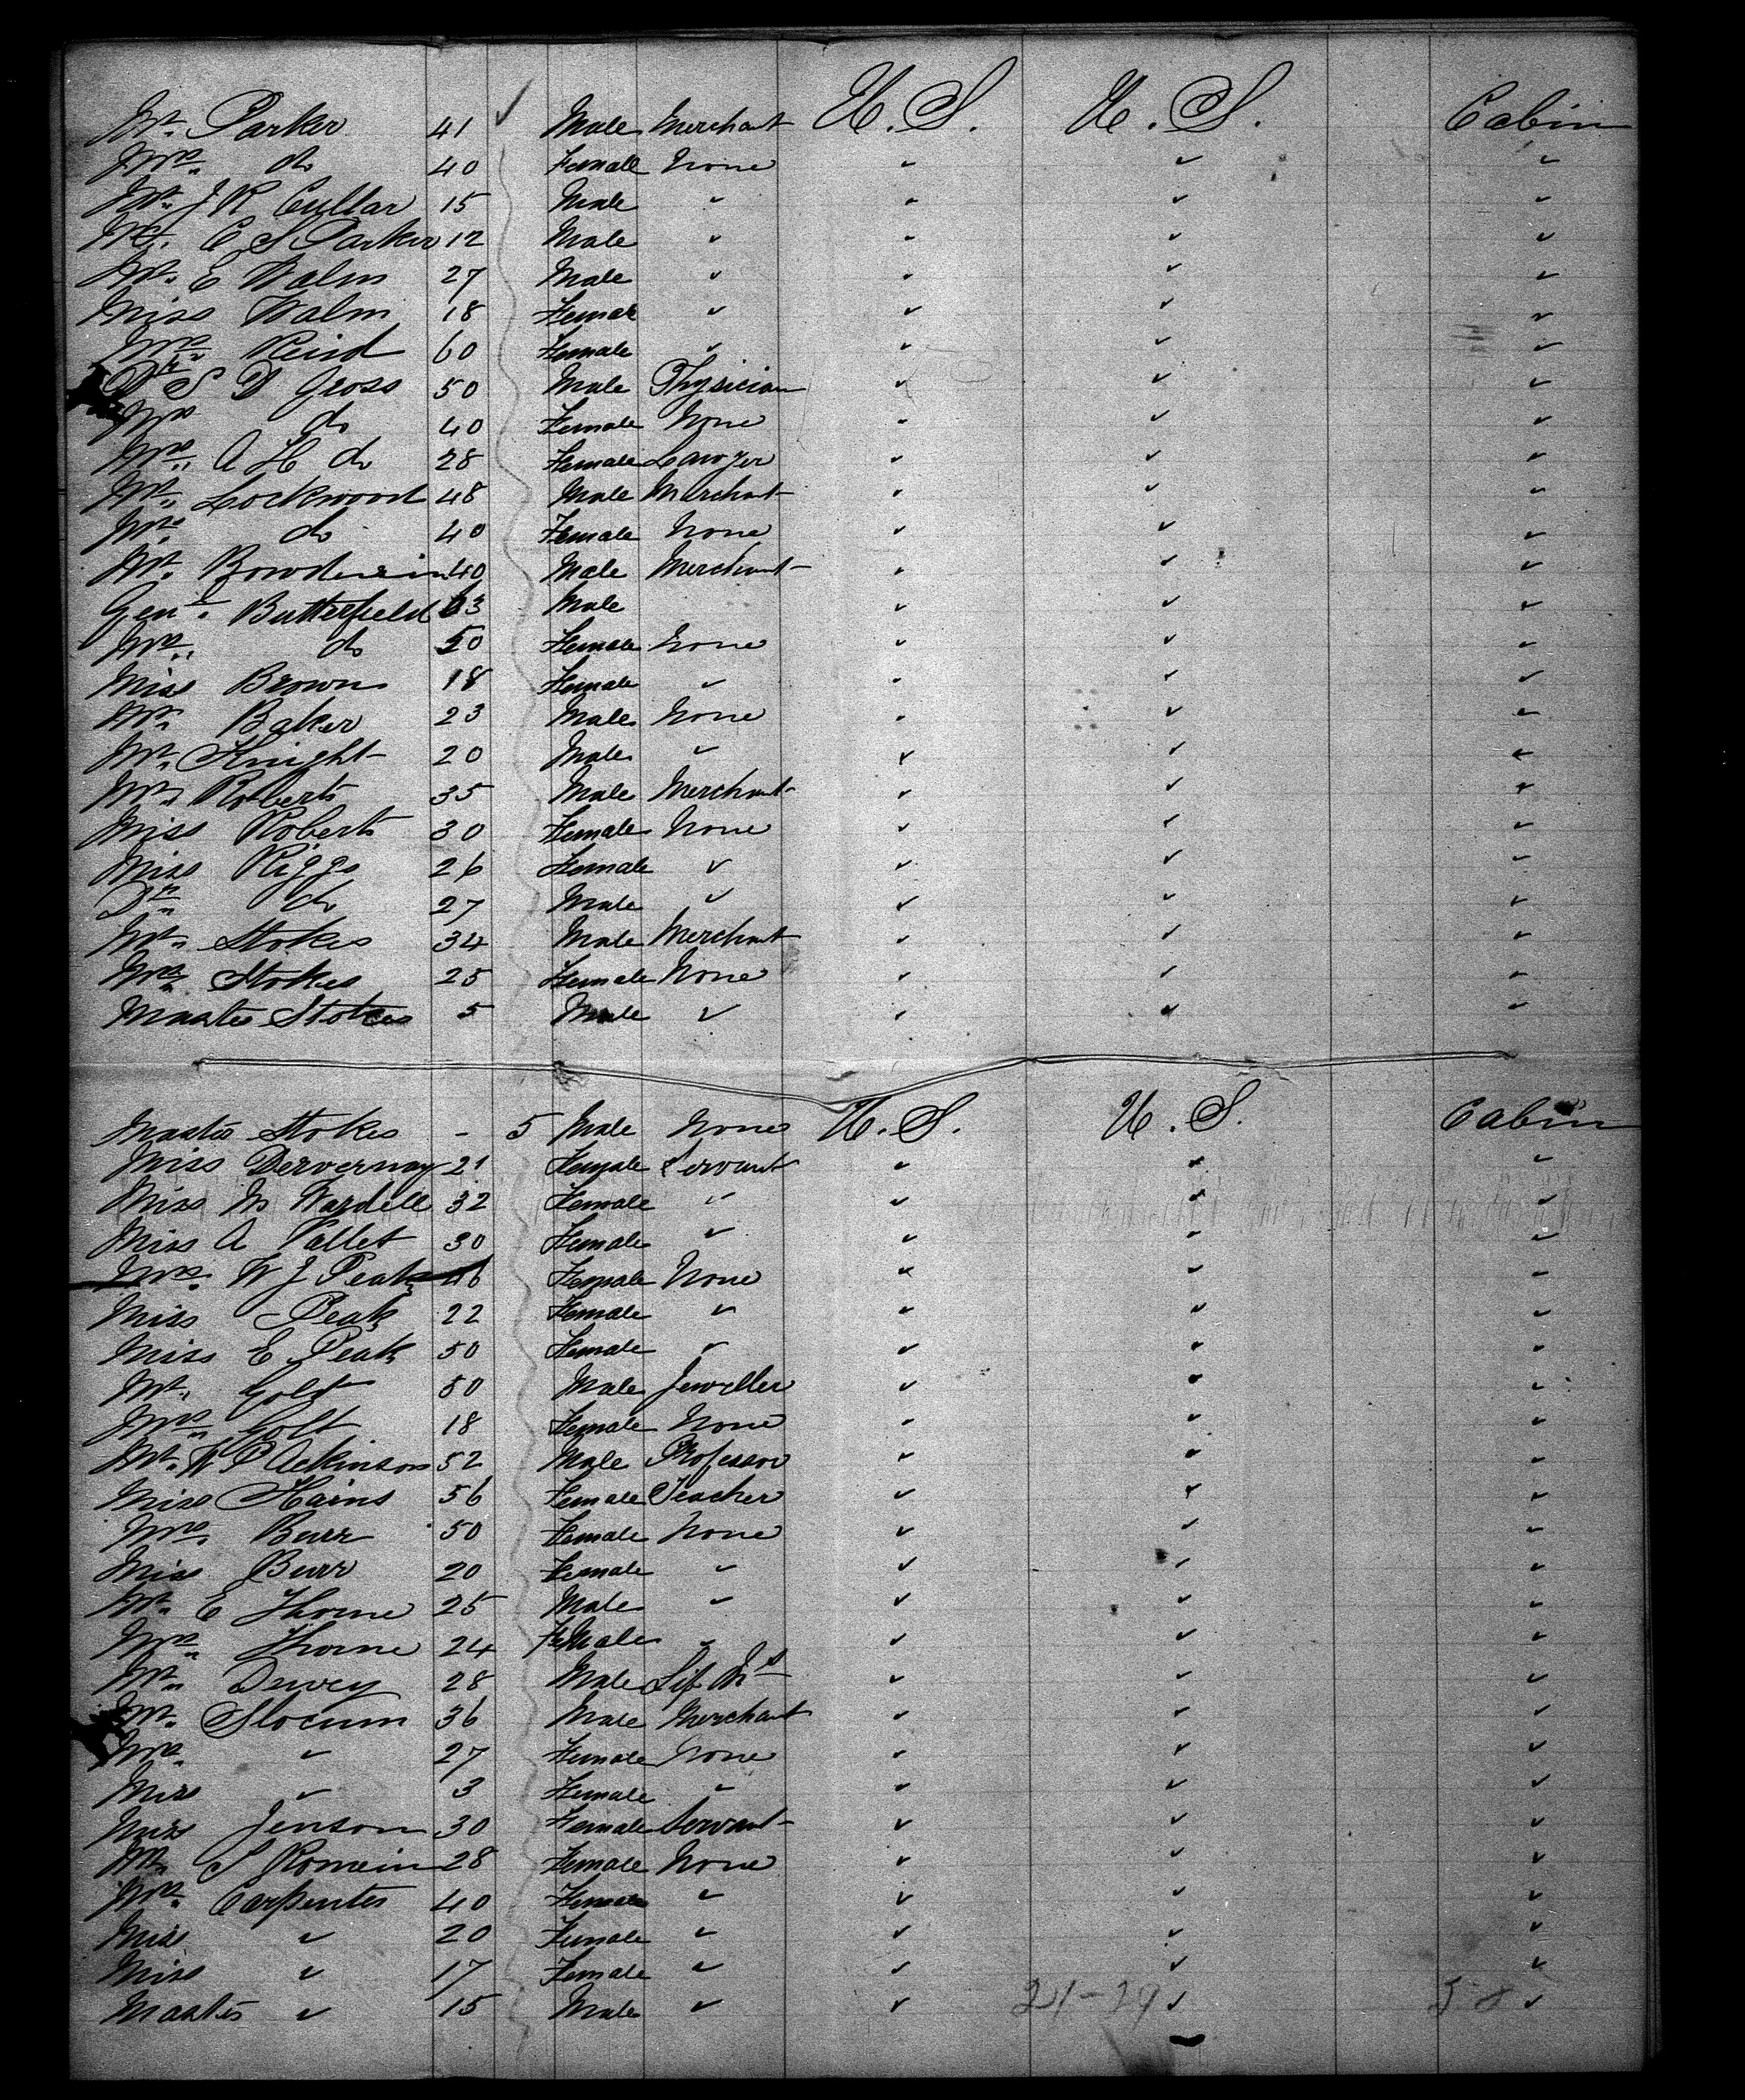 Mr. Parker 41 ✓ Male Merchant U.S. U.S. Cabin
Mrs. do 40 Female None " " "
Mr. J R Cullar 15 Male " " " "
C S Parker 12 Male " " " "
Mr. E Waln 27 Male " " " "
Miss Waln 18 Female " " " "
Mrs. Reid 60 Female " " " "
Dr. S D Gross 50 Male Physician " " "
Mrs do 40 Female None " " "
A H do 28 Female Lawyer " " "
Mr. Lockwood 48 Male Merchant " " "
Mrs. do 40 Female None " " "
Mr. 40 Male Merchant " " "
Genl. Butterfield 63 Male " " "
Mrs. do 50 Female None " " "
Miss Brown 18 Female " " " "
Mr. Baker 23 Male None " " "
Mr. Knight 20 Male " " " "
Mr. Roberts 35 Male Merchant " " "
Miss Roberts 30 Female None " " "
Miss Riggs 26 Female " " " "
Dr. do 27 Male " " " "
Mr. Stokes 34 Male Merchant " " "
Mrs. Stokes 25 Female None " " "
Master Stokes 5 Male " " " "
Master Stokes - 5 Male None U.S. U.S. Cabin
Miss Dervernay 21 Female Servant " " "
Miss M Wardell 32 Female " " " "
Miss A Vallet 30 Female " " " "
Mrs. W J Peak 46 Female None " " "
Miss Peak 22 Female " " " "
Miss E Peak 50 Female " " " "
Mr. Colt 50 Male Jeweller " " "
Mrs. Colt 18 Female None " " "
Mr. W P Ackinson 52 Male Professor " " "
Miss Hains 56 Female Teacher " " "
Mrs. Burr 50 Female None " " "
Miss Burr 20 Female " " " "
Mr. E Thorne 25 Male " " " "
Mrs. Thorne 24 FeMale " " " "
Mr. Dewey 28 Male " " "
Mr. Slocum 36 Male Merchant " " "
Mrs. " 27 Female None " " "
Miss " 3 Female " " " "
Miss Jenson 30 Female Servant " " "
S Romein 28 Female None " " "
Mrs. Carpenter 40 Female " " " "
Miss " 20 Female " " " "
Miss " 17 Female " " " "
Master " 15 Male " " " "